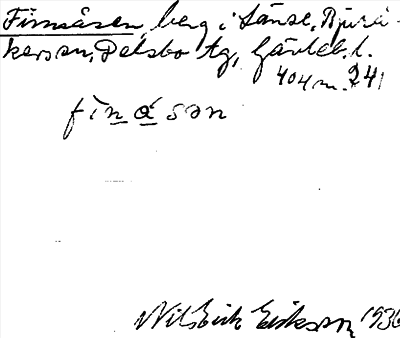 Finnåsen, berg i Länse, Bjurå-
kers sn, Delsbo tg, Gävleb. l.
404 m. 241
fìnåsən
Nils Erik Eriksson 1936